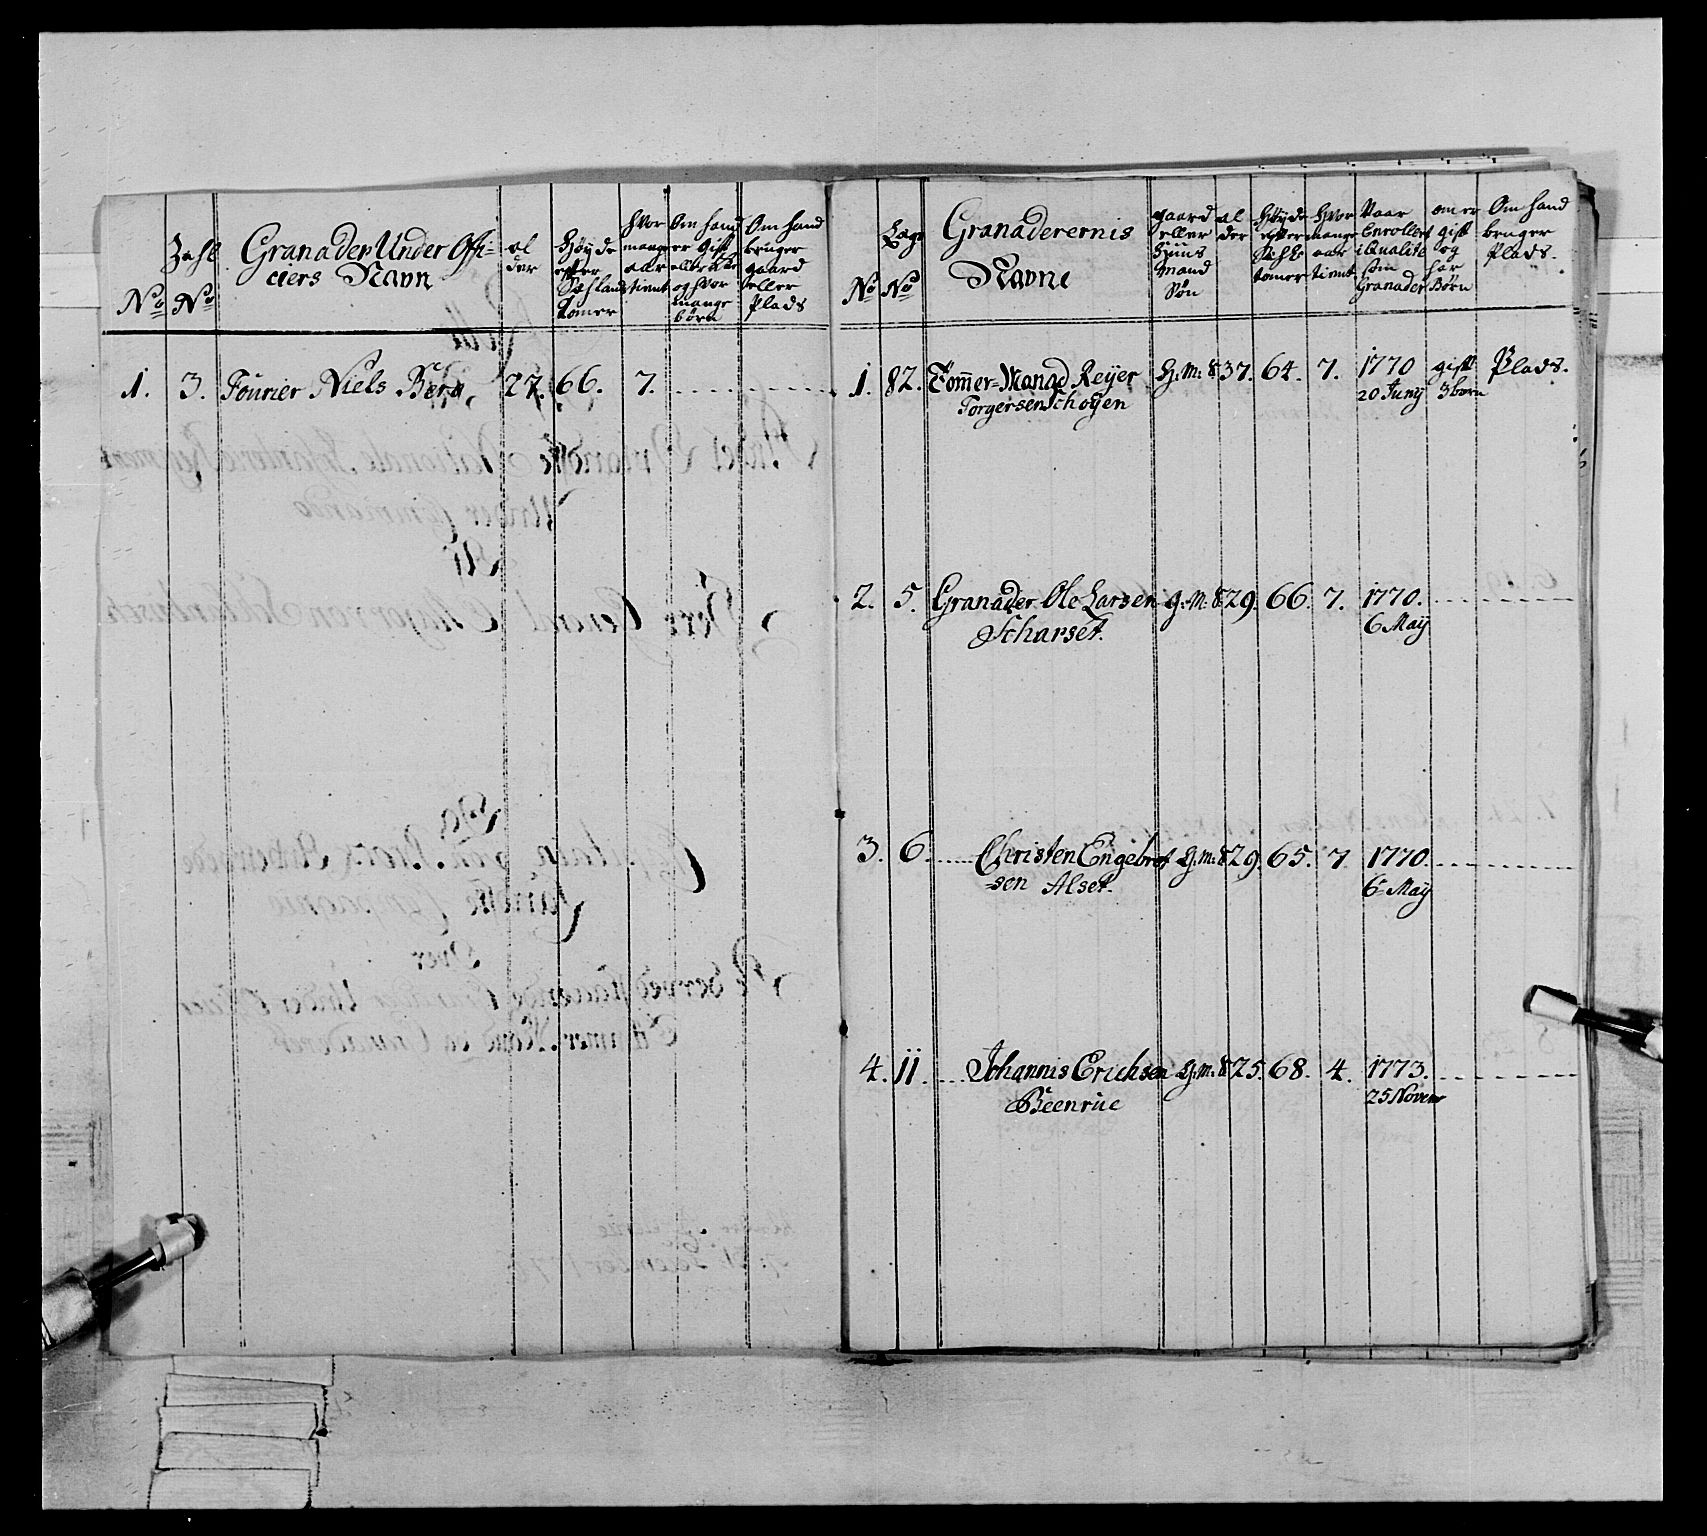 No
Zahl No
Granader Under Offi-
ciers Navn
al
der
Höyde
efter
Sæhlands
tomer
hvor
mange
aar
tient
Om hand
er gift
eller ikke
og hvor
mange
börn
Om hand
bruger
gaard
eller
Plads
1. 3. Fourier Niels Berg 27. 66. 7.
No
Lægs No
Granaderernis
Navne
gaard
eller
Huus
Mand
Sön
al
der
Höyde
efter
Sæhl:
tomer
Hvor
mange
aar
tient
Naar
Enrollert
i Qualite
som
Granader
om er
gift
og
har
Börn
Om hand
bruger
Plads.
1. 82. Tömer-Mand Reyer G: M: S 37. 64. 7. 1770 gift Plads.
Torgersen Schoyen 20 Juny 3 börn
2. 5. Granader Ole Larsen g. M: S 29. 66. 7. 1770.
Scharset. 6 May
3. 6. Christen Engebret G: m: S 29. 65. 7. 1770.
sen Alset. 6 May
4. 11. Johannis Erichsen G: m: S 25. 68. 4. 1773.
Beenrüe 25 Novem